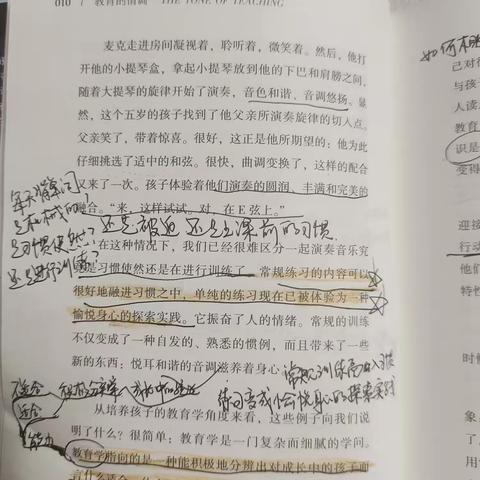 010 / 教育的情调 THE TONE OF TEACHING
麦克走进房间凝视着,聆听着,微笑着。然后,他打
开他的小提琴盒,拿起小提琴放到他的下巴和肩膀之间,
随着大提琴的旋律开始了演奏,音色和谐、音调悠扬。显
然,这个五岁的孩子找到了他父亲所演奏旋律的切入点。
父亲笑了,带着惊喜。很好,这正是他所期望的:他为此
仔细挑选了适中的和弦。很快,曲调变换了,这样的配合
又来了一次。孩子体验着他们演奏的圆润、丰满和完美的
融合。“来,这样试试。对,在 E 弦上。”
还是被迫 还是 的习惯
在这种情况下,我们已经很难区分一起演奏音乐究
竟是习惯使然还是在进行训练了。常规练习的内容可以
很好地融进习惯之中,单纯的练习现在已被体验为一种
愉悦身心的探索实践。它振奋了人的情绪。常规的训练
不仅变成了一种自发的、熟悉的惯例,而且带来了一些
新的东西:悦耳和谐的音调滋养着身心
从培养孩子的教育学角度来看,这些例子向我们说
明了什么?很简单:教育学是一门复杂而细腻的学问。
教育学指向的是一种能积极地分辨出对成长中的孩子而
言什么适合
每天背单词
是机械的?
是习惯使然?
还是进行训练?
常规训练融入习惯
练习变成愉悦身心的探索实践
不适合
适合
积极分辨
能力
如何
己对
与孩
人读
教育
识是
变得
迎接
行动
他们
特性
时候
象
成